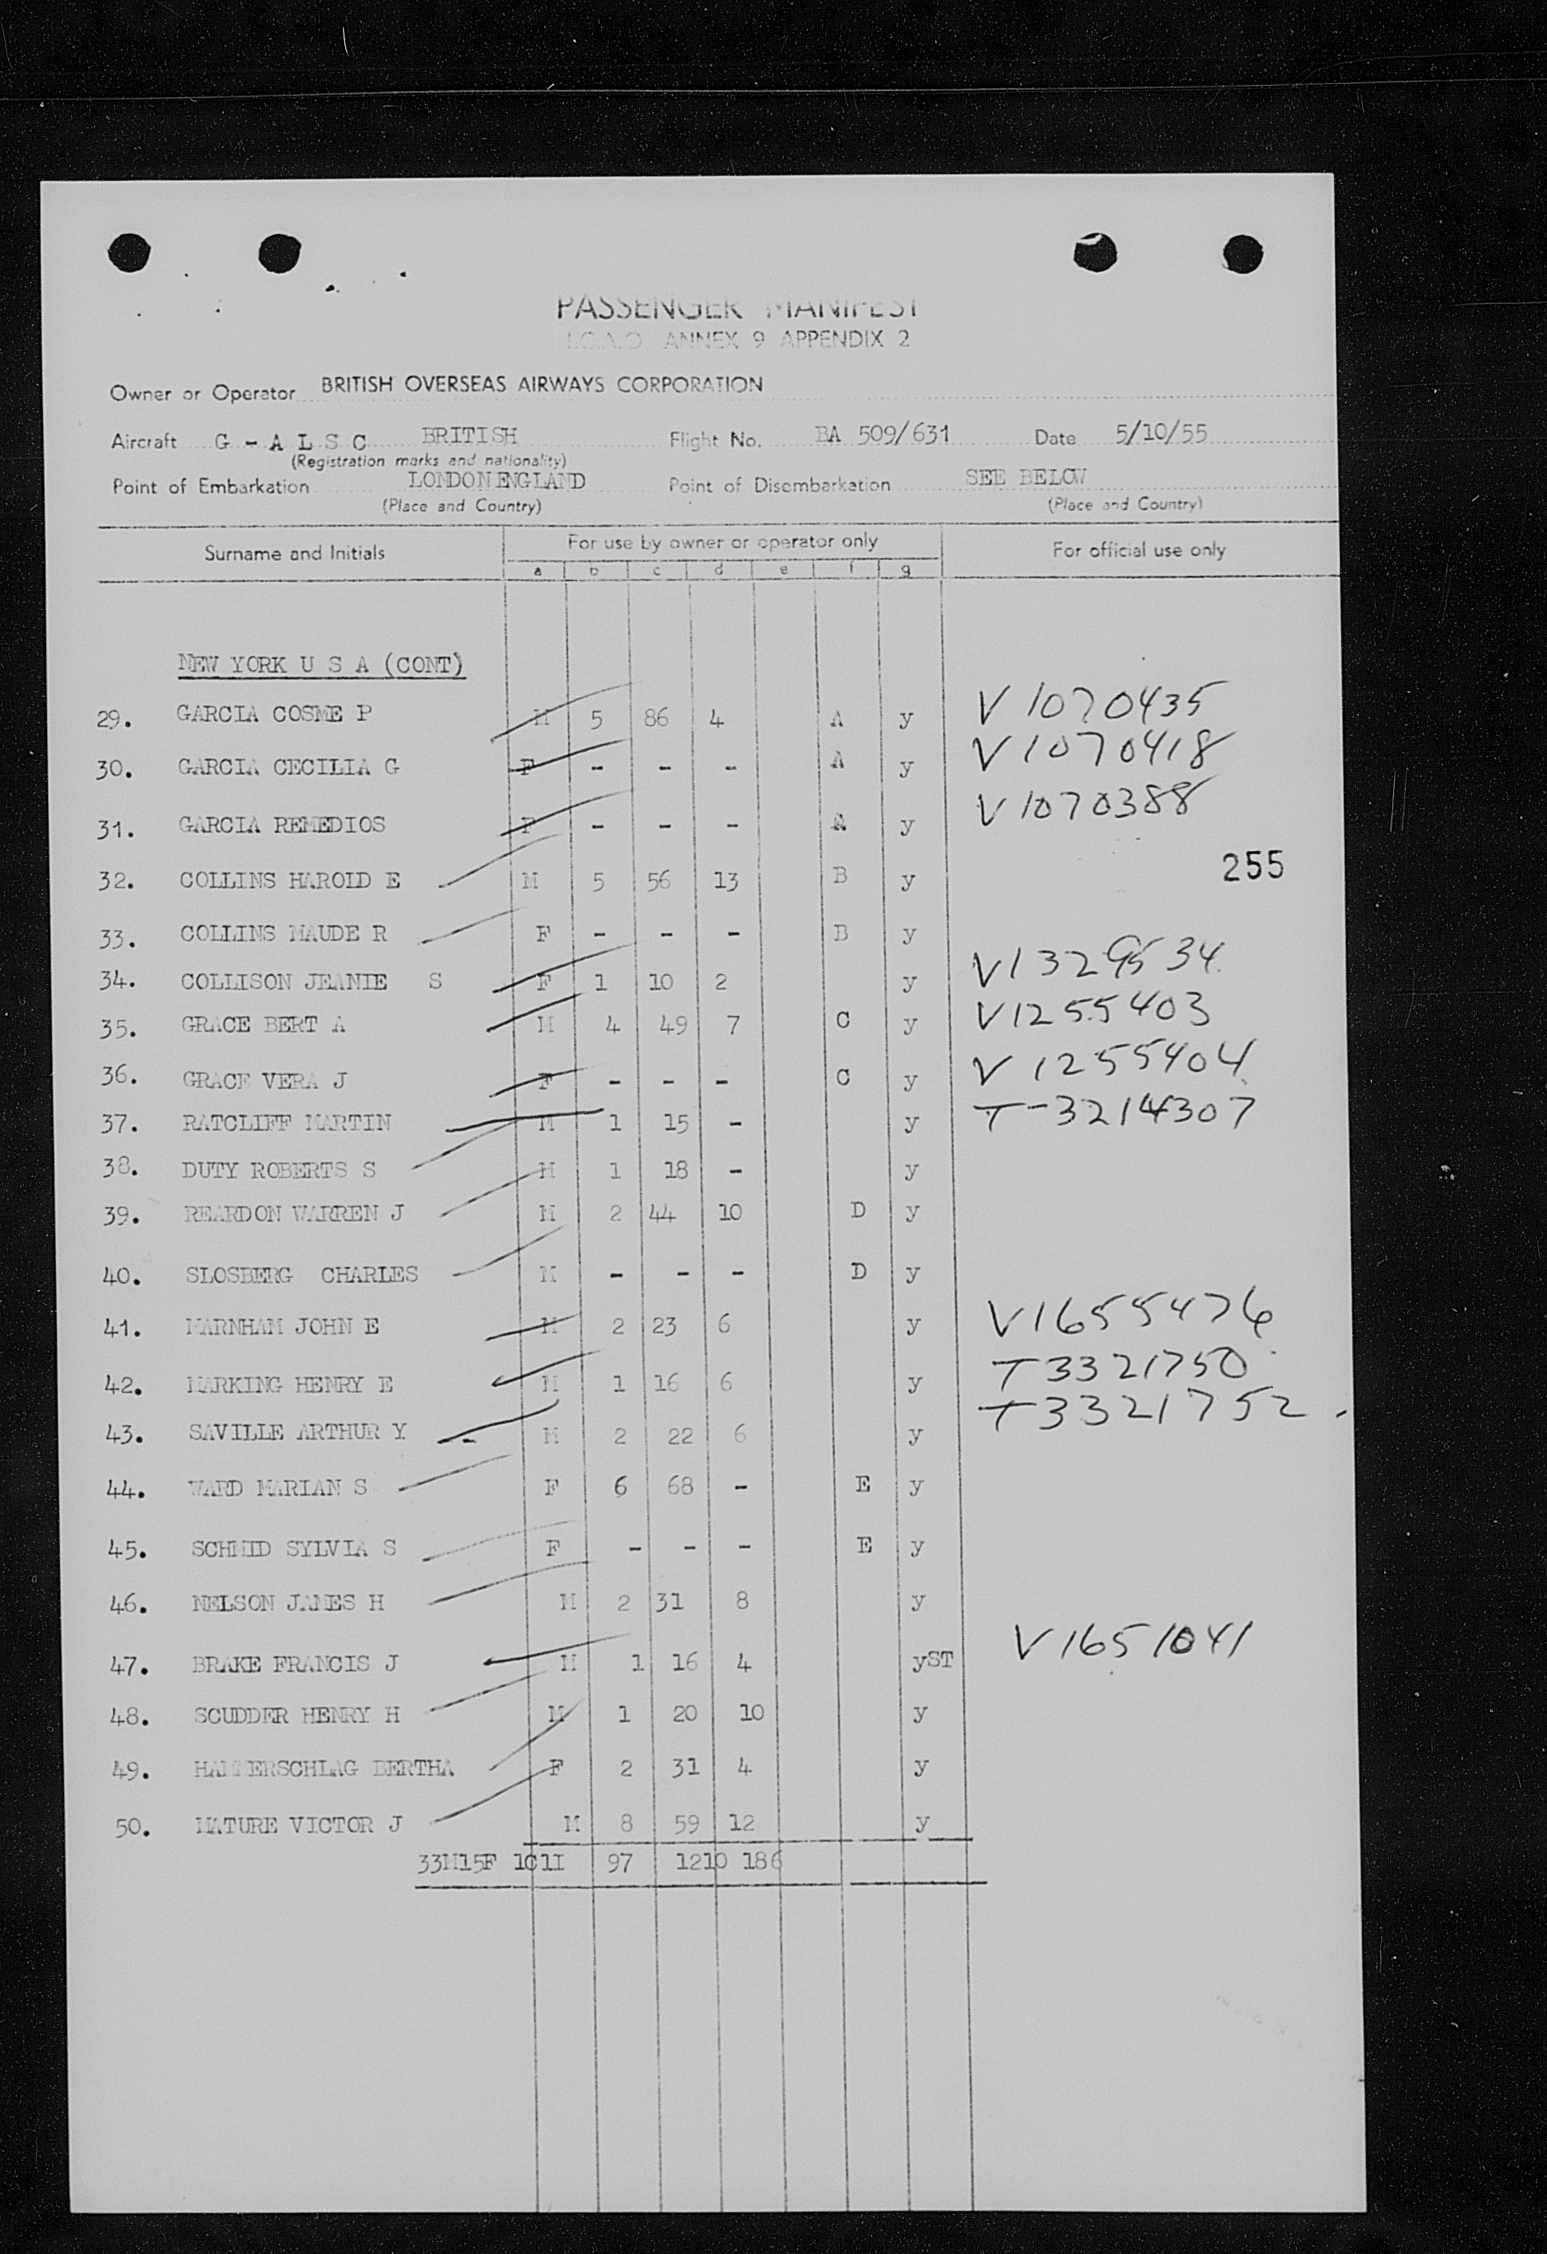 PASSENGER MANIFEST
I.C.A.O. ANNEX 9 APPENDIX 2
Owner or Operator BRITISH OVERSEAS AIRWAYS CORPORATION
Aircraft G - A L S C BRITISH Flight No. BA 509/631 Date 5/10/55
(Registration marks and nationality)
Point of Embarkation LONDON ENGLAND Point of Disembarkation SEE BELOW
(Place and Country) (Place and Country)
Surname and Initials For use by owner or operator only For official use only
a b c d e f g
NEW YORK U S A (CONT)
29. GARCIA COSME P M 5 86 4 A y V 1070435
30. GARCIA CECILIA G F - - - A y V1070418
31. GARCIA REMEDIOS F - - - A y V1070388
255
32. COLLINS HAROLD E M 5 56 13 B y
33. COLLINS MAUDE R F - - - B y
34. COLLISON JEANIE S F 1 10 2 y V1329534
35. GRACE BERT A M 4 49 7 C y V1255403
36. GRACE VERA J F - - - C y V 1255404
37. RATCLIFF MARTIN M 1 15 - y T-3214307
38. DUTY ROBERTS S M 1 18 - y
39. REARDON WARREN J M 2 44 10 D y
40. SLOSBERG CHARLES M - - - D y
41. MARNHAM JOHN E M 2 23 6 y V1655476
42. MARKING HENRY E M 1 16 6 y T3321750
43. SAVILLE ARTHUR Y M 2 22 6 y T3321752.
44. WARD MARIAN S F 6 68 - E y
45. SCHMID SYLVIA S F - - - E y
46. NELSON JAMES H M 2 31 8 y
47. BRAKE FRANCIS J M 1 16 4 yST V1651041
48. SCUDDER HENRY H M 1 20 10 y
49. HAMMERSCHLAG BERTHA F 2 31 4 y
50. MATURE VICTOR J M 8 59 12 y
33M15F 1C1I 97 1210 186